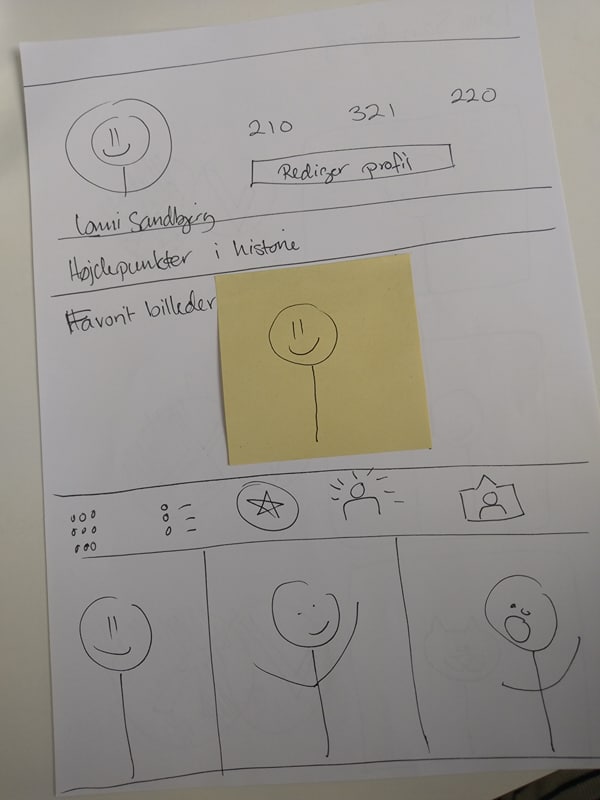 210 321 220
Rediger profil
Lonni Sandbjerg
Højdepunkter i historie
Favorit billeder